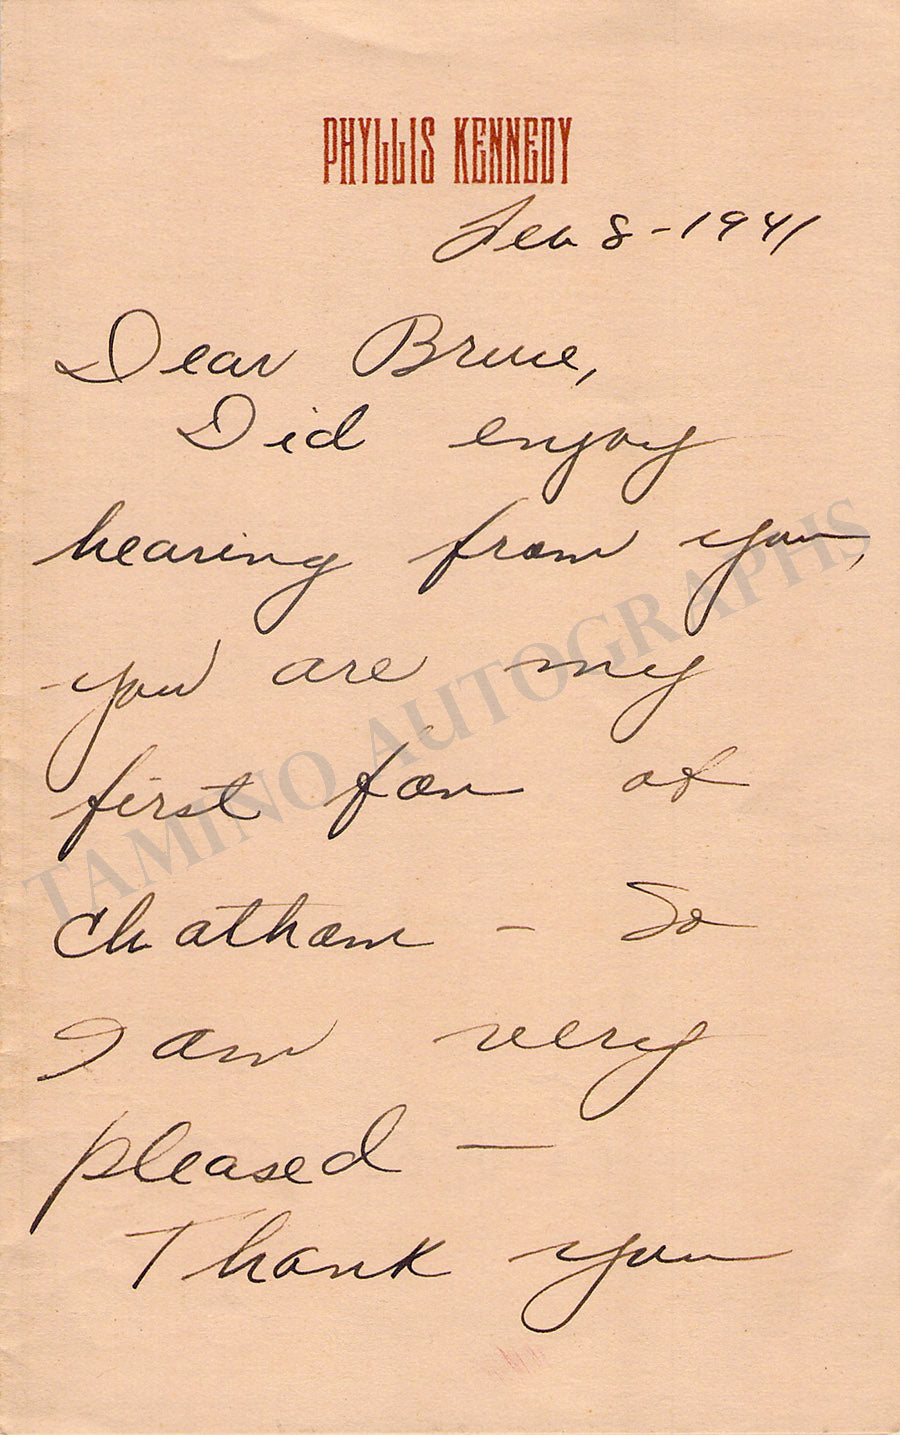 PHYLLIS KENNEDY
8-1941
Dear Bruce,
Did enjoy
hearing from you,
you are my
first fan at
Chatham - So
I am very
pleased —
Thank you
TAMINO AUTOGRAPHS